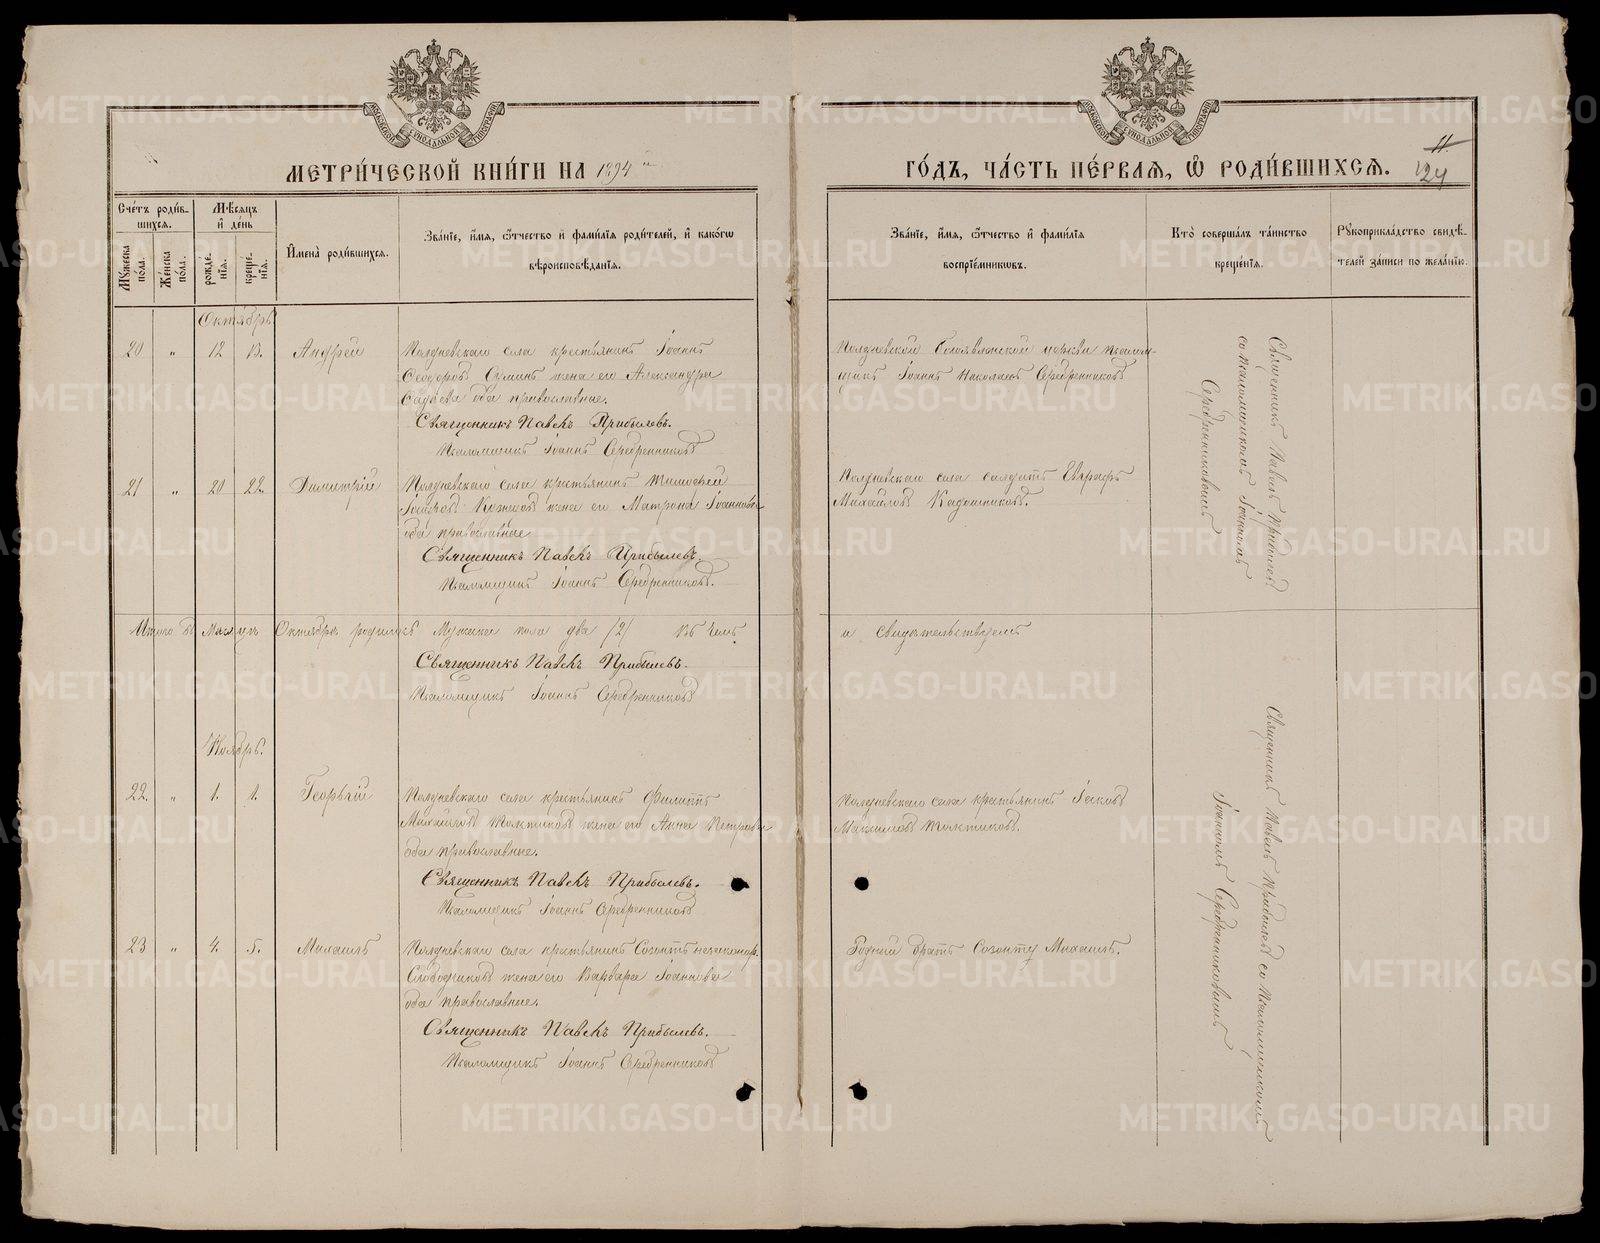 МЕТРИ́ЧЕСКОЙ КНИ́ГИ НА 1894 й
ГО́ДЪ, ЧА́СТЬ ПЕ́РВАѦ, Ѡ҆ РОДИ́ВШИХСѦ.
11.
124
Сче́тъ роди́в-
шихсѧ.
Мѣ́сѧцъ
и҆ де́нь
И҆мена̀ роди́вшихсѧ.
Зва́нїе, и҆́мѧ, ѻ҆́тчество и҆ фами́лїѧ роди́телей, и҆ како́гѡ
вѣроисповѣ́данїѧ.
Мꙋ́жеска
по́ла.
Же́нска
по́ла.
рожде́-
нїѧ.
креще́-
нїѧ.
Зва́нїе, и҆́мѧ, ѻ҆́тчество и҆ фами́лїѧ
воспрїе́мникѡвъ.
Кто̀ соверша́лъ та́инство
креще́нїѧ.
Рꙋкоприкла́дство свидѣ́-
телей за́писи по жела́нїю.
Октябрь
20 „ 12 13. Андрей
Полдневскаго села крестьянинъ Іоаннъ
Ѳеодоровъ жена его Александра
оба православные.
Священникъ Павелъ Прибылевъ.
Псаломщикъ Іоаннъ Серебренниковъ
Полдневской Богоявленской церкви псалом-
щикъ Іоаннъ Николаевъ Серебренниковъ
Священникъ Павелъ Прибылевъ
со псаломщикомъ Іоанномъ
Серебренниковымъ
21 „ 20 22. Димитрій
Полдневскаго села крестьянинъ Тимофей
жена его Матрона Іоаннова
оба православные
Священникъ Павелъ Прибылевъ.
Псаломщикъ Іоаннъ Серебренниковъ.
Полдневскаго села солдатъ Евграфъ
Михайловъ Кадошниковъ.
Итого въ Месяцѣ Октябрѣ родилось Мужска пола два /2/ въ чемъ
и свидѣтельствуемъ
Священникъ Павелъ Прибылевъ.
Псаломщикъ Іоаннъ Серебренниковъ
Ноябрь.
22. „ 1. 1. Георгій
Полдневскаго села крестьянинъ Филиппъ
Михайловъ Толстиковъ жена его Анна Петрова
оба православные.
Священникъ Павелъ Прибылевъ.
Псаломщикъ Іоаннъ Серебренниковъ
Полдневскаго села крестьянинъ
Толстиковъ.
Священникъ Павелъ Прибылевъ со псаломщикомъ
Іоанномъ Серебренниковымъ
23 „ 4. 5. Михаилъ
Полдневскаго села крестьянинъ Созонтъ
Слободчиковъ жена его Варвара Іоаннова
оба православные.
Священникъ Павелъ Прибылевъ.
Псаломщикъ Іоаннъ Серебренниковъ
Родний братъ Созонту Михаилъ.
METRIKI.GASO-URAL.RU